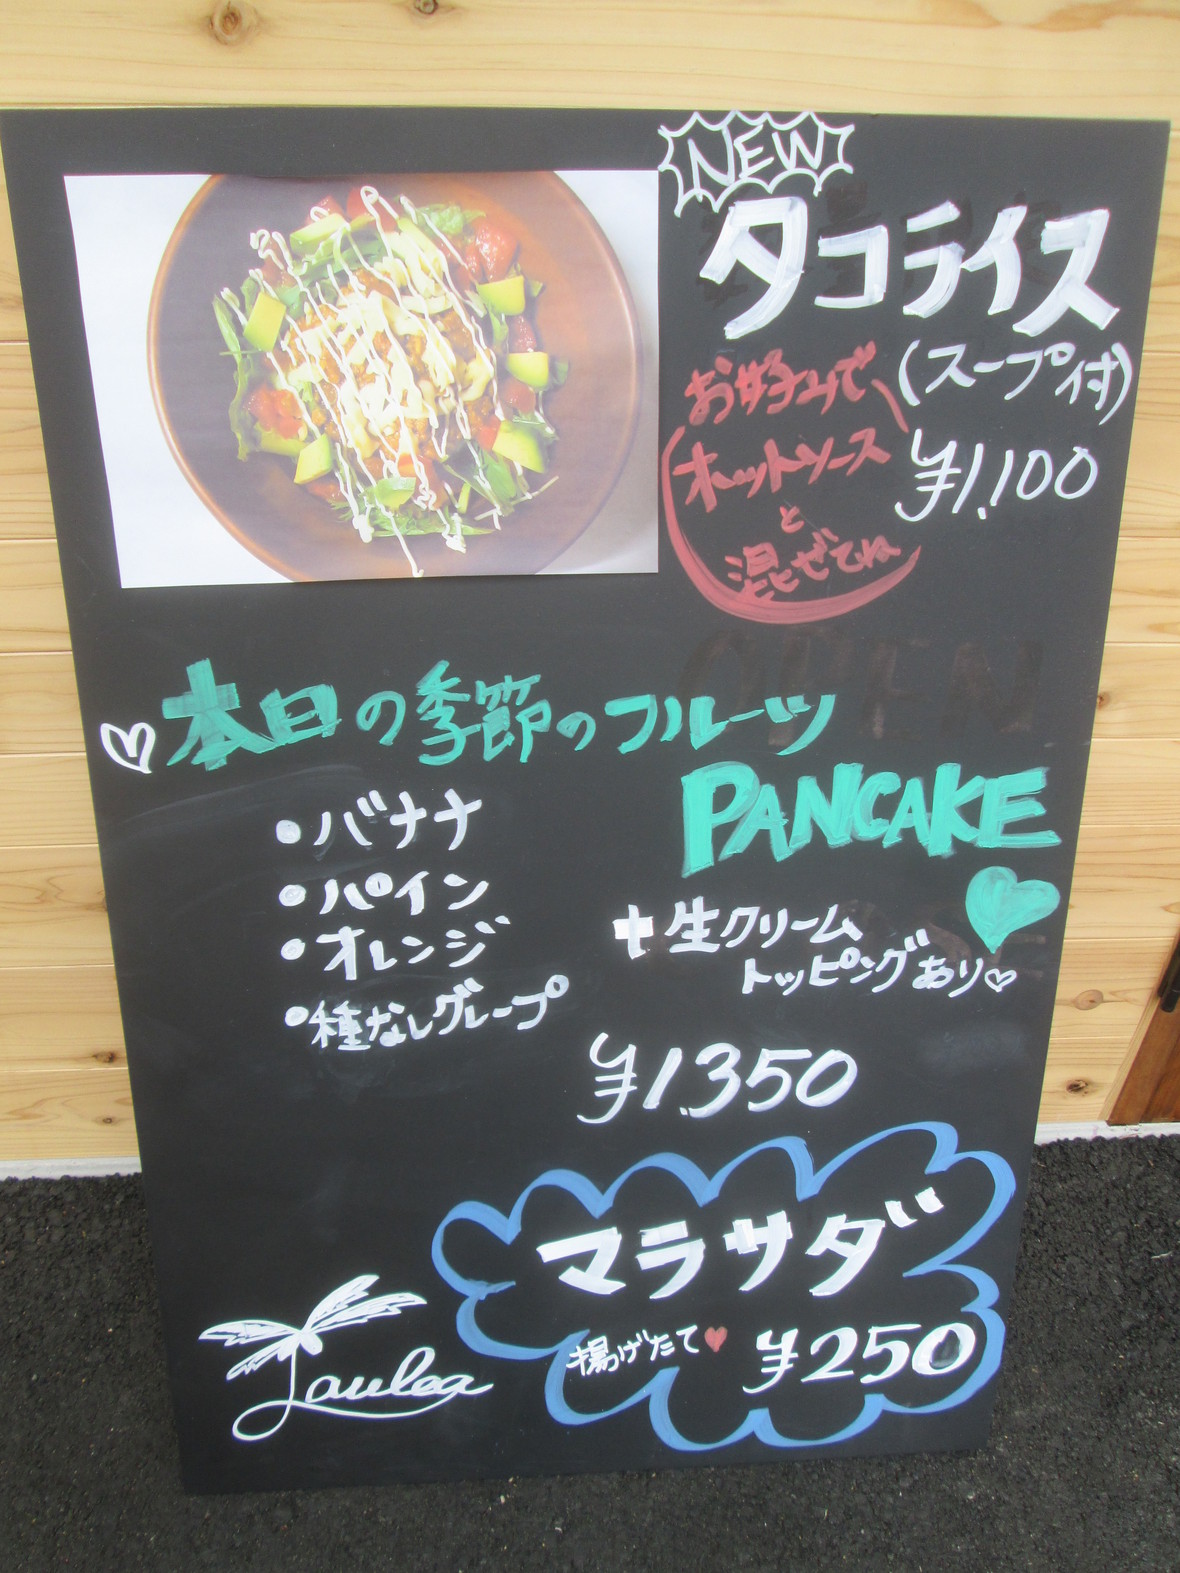 NEW
タコライス
(スープ付)
¥1,100
お好みで
ホットソース
と
混ぜてね
本日の季節のフルーツ
PANCAKE
・バナナ
・パイン
・オレンジ
・種なしグレープ
+生クリーム
トッピングあり♡
¥1,350
マラサダ
揚げたて♥ ¥250
Laulea